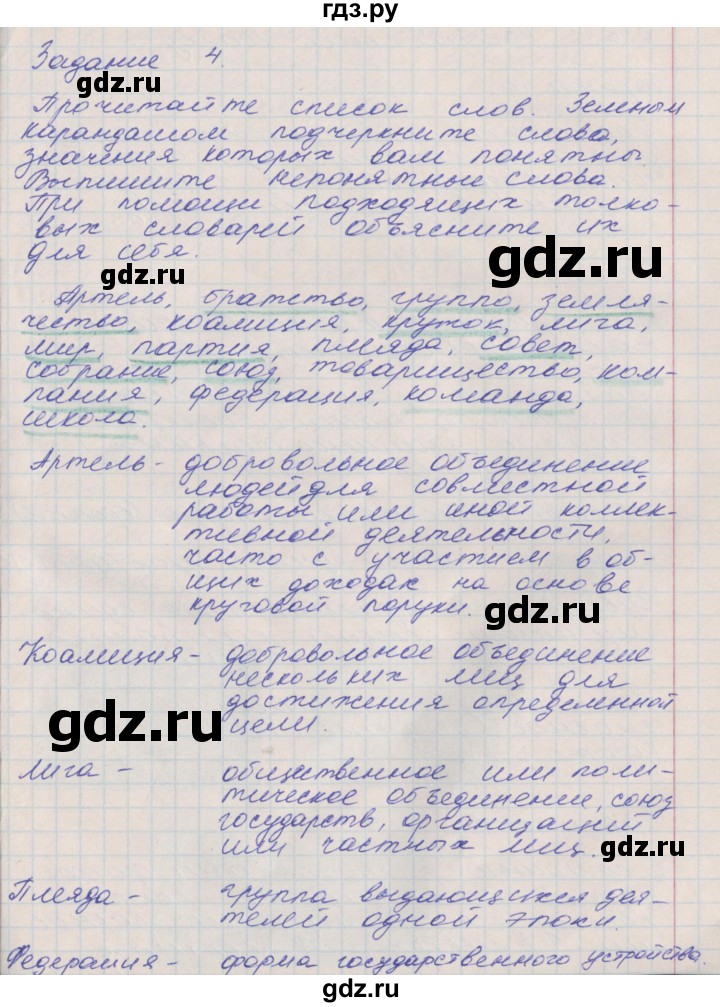 гдз.ру
Задание 4.
gdz.ru
Прочитайте список слов. Зеленым
карандашом подчеркните слова,
значения которых вам понятны.
Выпишите непонятные слова.
При помощи подходящих толко-
вых словарей объясните их
для себя.
gdz.ru
gdz.ru
Артель, братство, группа, земля-
чество, коалиция, кружок, лига,
мир, партия, плеяда, совет,
собрание, союз, товарищество, ком-
пания, федерация, команда,
школа.
Артель - добровольное объединение
людей для совместной
работы или иной коллек-
тивной деятельности,
часто с участием в об-
щих доходах на основе
круговой поруки.
gdz.ru
Коалиция - добровольное объединение
нескольких лиц для
достижения определенной
цели.
gdz.ru
Лига - общественное или поли-
тическое объединение, союз
государств, организаций
или частных лиц.
gdz.ru
Плеяда - группа выдающихся дея-
телей одной эпохи.
Федерация - форма государственного устройства.
gdz.ru